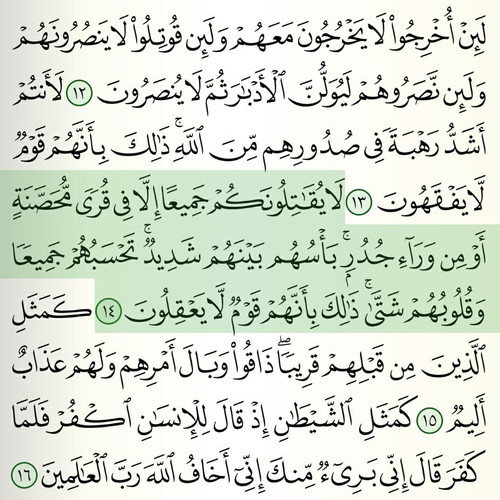 لَئِنْ أُخْرِجُوا۟ لَا يَخْرُجُونَ مَعَهُمْ وَلَئِن قُوتِلُوا۟ لَا يَنصُرُونَهُمْ
وَلَئِن نَّصَرُوهُمْ لَيُوَلُّنَّ ٱلْأَدْبَـٰرَ ثُمَّ لَا يُنصَرُونَ ١٢ لَأَنتُمْ
أَشَدُّ رَهْبَةً فِى صُدُورِهِم مِّنَ ٱللَّهِ ۚ ذَٰلِكَ بِأَنَّهُمْ قَوْمٌ
لَّا يَفْقَهُونَ ١٣ لَا يُقَـٰتِلُونَكُمْ جَمِيعًا إِلَّا فِى قُرًى مُّحَصَّنَةٍ
أَوْ مِن وَرَآءِ جُدُرٍۭ ۚ بَأْسُهُم بَيْنَهُمْ شَدِيدٌ ۚ تَحْسَبُهُمْ جَمِيعًا
وَقُلُوبُهُمْ شَتَّىٰ ۚ ذَٰلِكَ بِأَنَّهُمْ قَوْمٌ لَّا يَعْقِلُونَ ١٤ كَمَثَلِ
ٱلَّذِينَ مِن قَبْلِهِمْ قَرِيبًا ۖ ذَاقُوا۟ وَبَالَ أَمْرِهِمْ وَلَهُمْ عَذَابٌ
أَلِيمٌ ١٥ كَمَثَلِ ٱلشَّيْطَـٰنِ إِذْ قَالَ لِلْإِنسَـٰنِ ٱكْفُرْ فَلَمَّا
كَفَرَ قَالَ إِنِّى بَرِىٓءٌ مِّنكَ إِنِّىٓ أَخَافُ ٱللَّهَ رَبَّ ٱلْعَـٰلَمِينَ ١٦